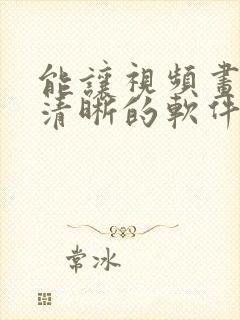 能讓視頻畫
清晰的軟件
常冰